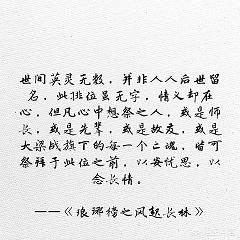 世间英灵无数，并非人人后世留
名，此排位虽无字，情义却在
心，但凡心中想祭之人，或是师
长，或是先辈，或是故友，或是
大梁战旗下的每一个亡魂，皆可
祭拜于此位之前，以安忧思，以
念长情。
——《琅琊榜之风起长林》